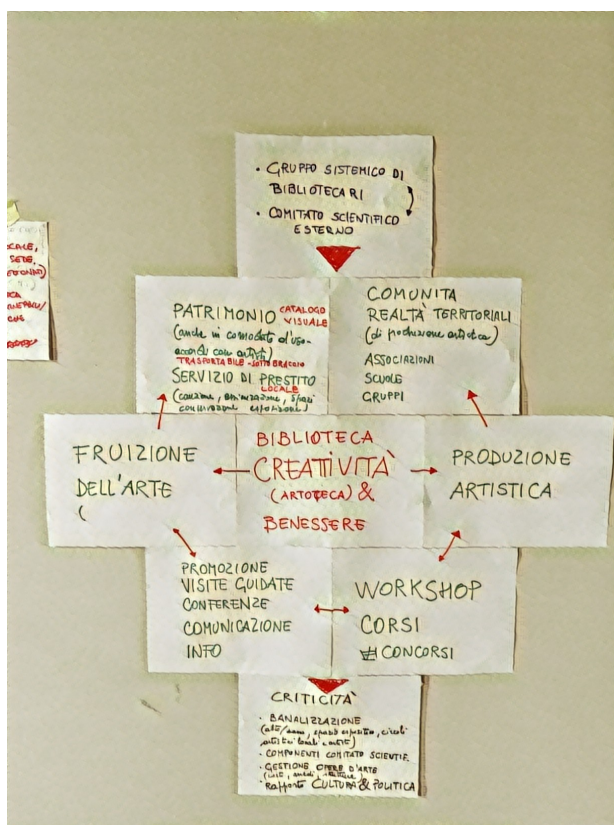 · GRUPPO SISTEMICO DI
BIBLIOTECARI
· COMITATO SCIENTIFICO
ESTERNO
PATRIMONIO CATALOGO
VISUALE
(anche in comodato d'uso-
accordi con artisti)
TRASPORTABILE - SOTTOBRACCIO
SERVIZIO DI PRESTITO
LOCALE
(cauzione, assicurazione, spazi
conservazione esposizione)
COMUNITA
REALTÀ TERRITORIALI
(di produzione artistica)
ASSOCIAZIONI
SCUOLE
GRUPPI
FRUIZIONE
DELL'ARTE
(
BIBLIOTECA
CREATIVITÀ
(ARTOTECA) &
BENESSERE
PRODUZIONE
ARTISTICA
PROMOZIONE
VISITE GUIDATE
CONFERENZE
COMUNICAZIONE
INFO
WORKSHOP
CORSI
CONCORSI
CRITICITÀ
· BANALIZZAZIONE
spazio espositivo, circoli
artistici locali
· COMPONENTI COMITATO SCIENTIF.
· GESTIONE OPERE D'ARTE
· Rapporto CULTURA & POLITICA
OCALE,
SEDE,